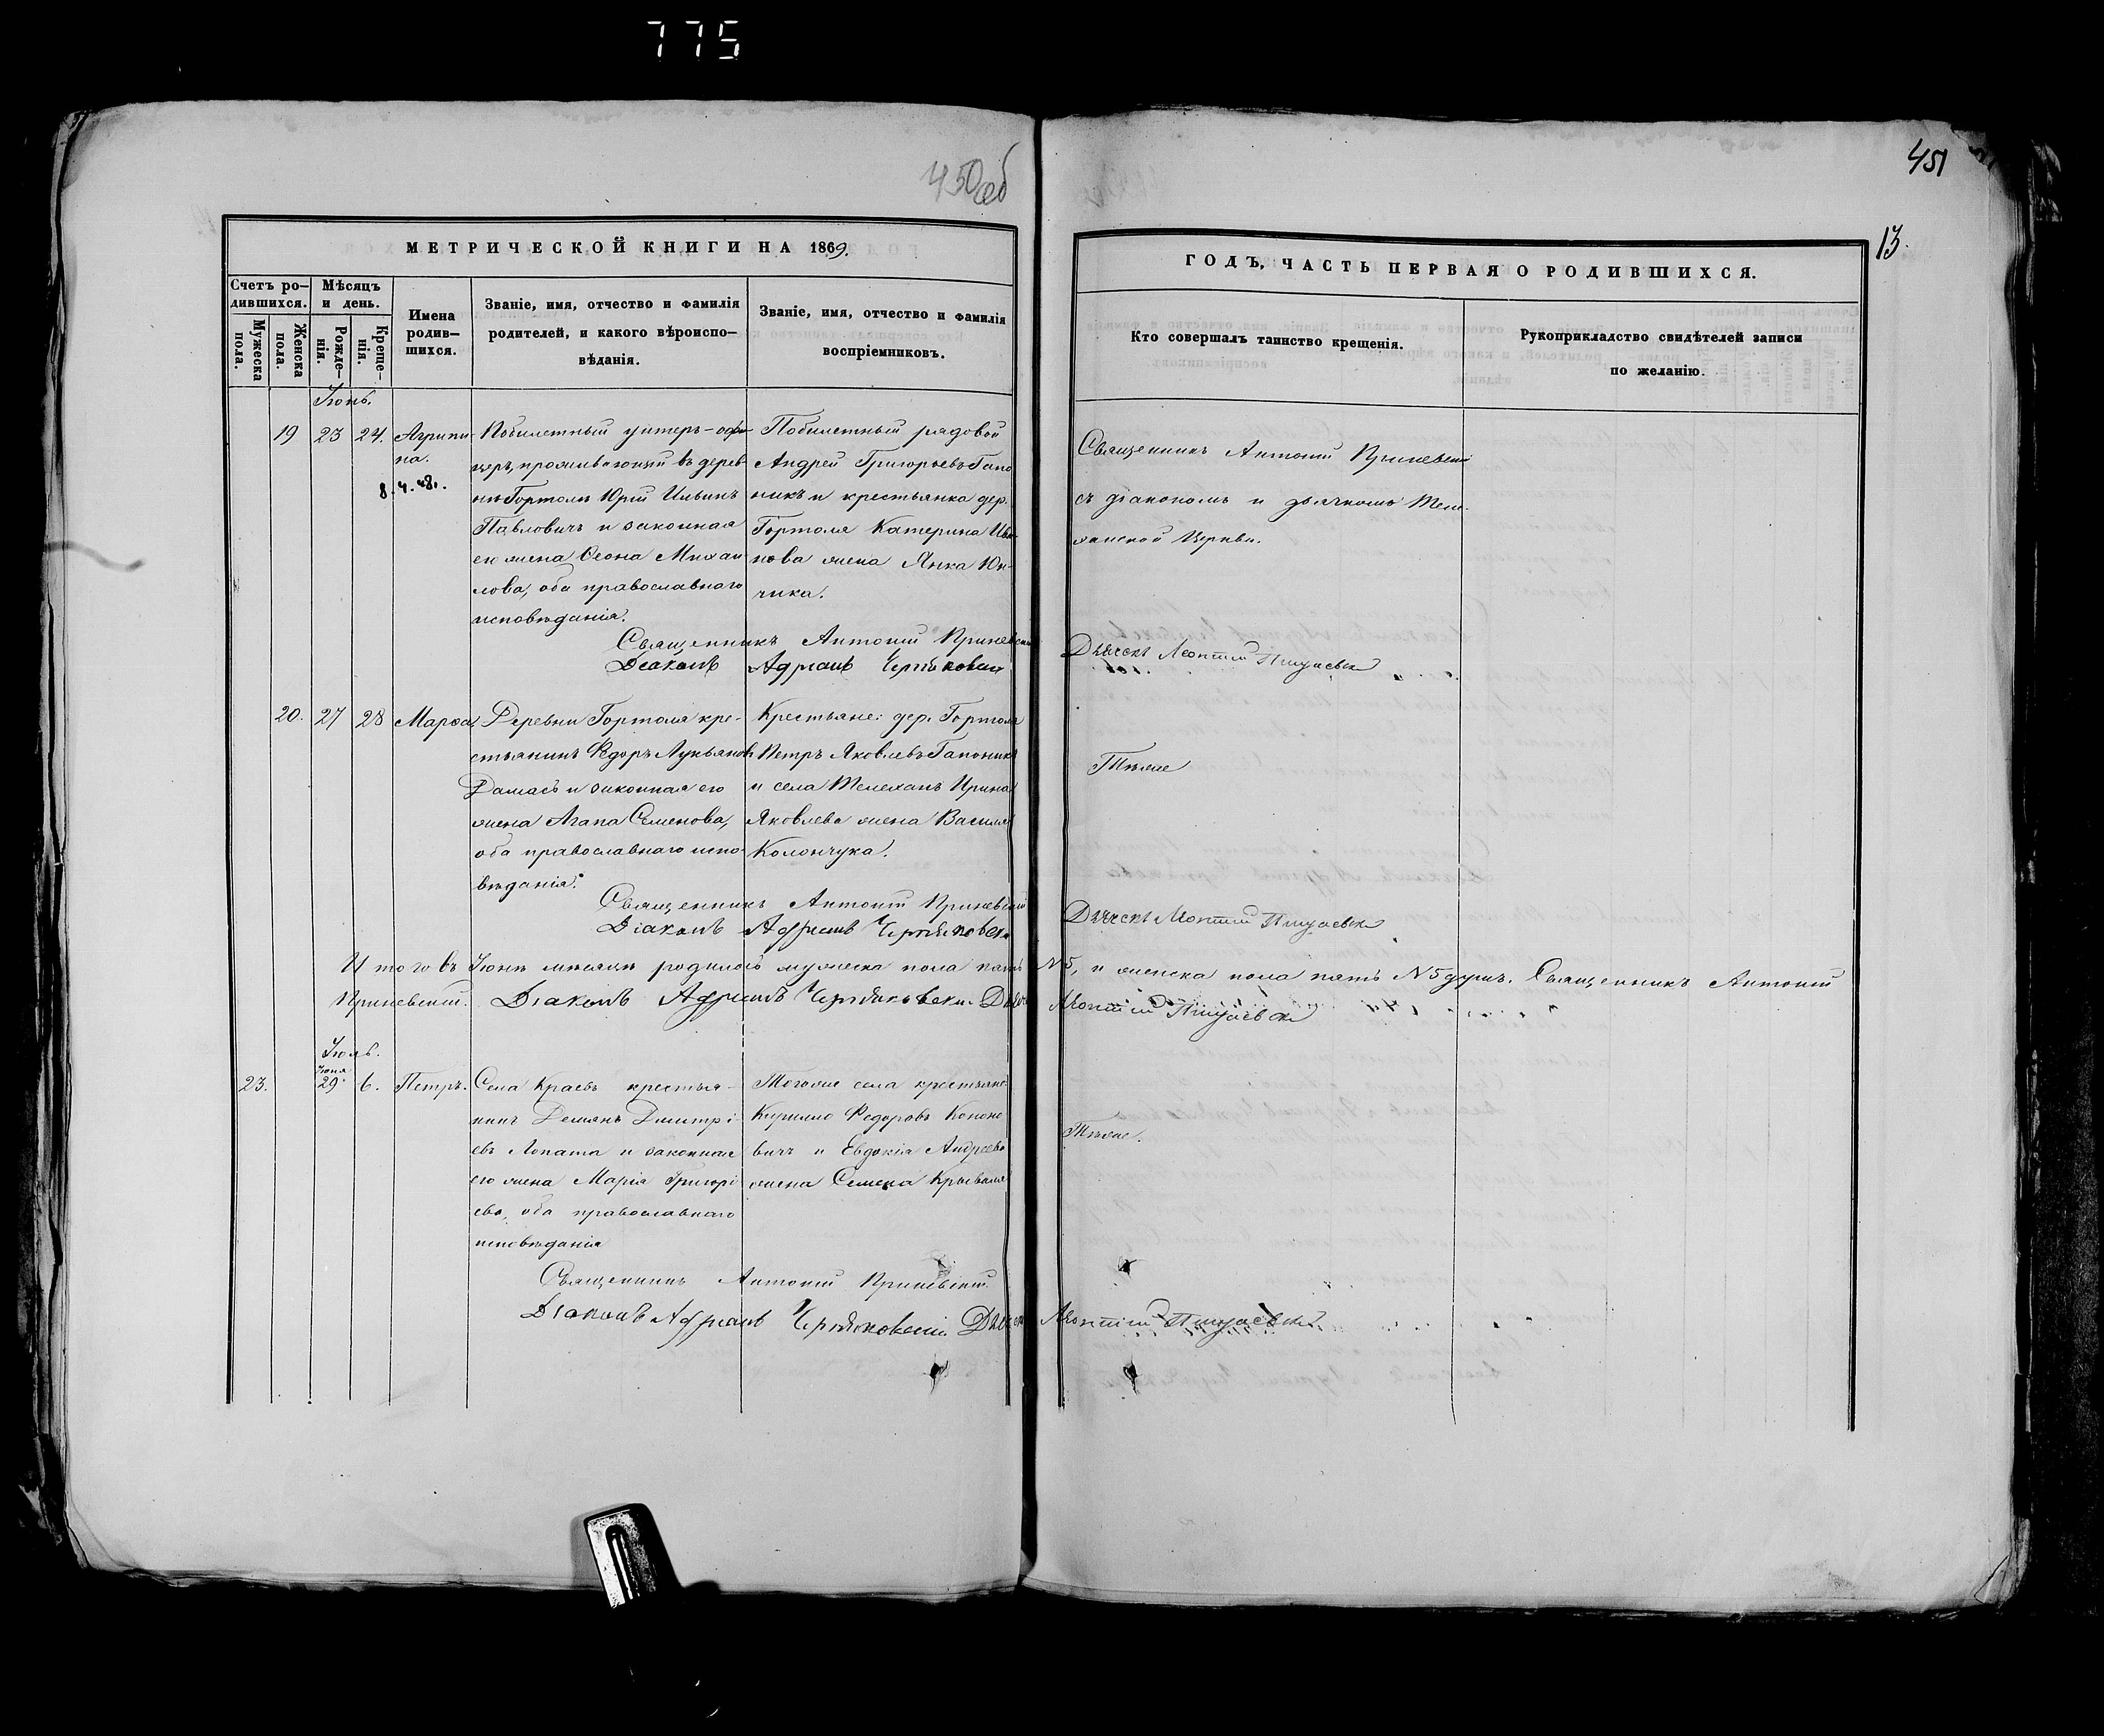 775
450 об
451
13.
МЕТРИЧЕСКОЙ КНИГИ НА 1869.
ГОДЪ, ЧАСТЬ ПЕРВАЯ О РОДИВШИХСЯ.
Счетъ ро-
дившихся.
Мужеска пола.
Женска пола.
Мѣсяцъ
и день.
Рожде-
нія.
Креще-
нія.
Имена
родив-
шихся.
Званіе, имя, отчество и фамилія
родителей, и какого вѣроиспо-
вѣданія.
Званіе, имя, отчество и фамилія
воспріемниковъ.
Кто совершалъ таинство крещенія.
Рукоприкладство свидѣтелей записи
по желанію.
Іюнь.
19 23 24. Агрипи-
на.
8.4.48.
унтеръ-офи-
церъ, проживающій въ дерев-
нѣ Гортоль Юрій Ильинъ
Павловичъ и законная
его жена Ѳеона Михаи-
лова, оба православнаго
исповѣданія.
рядовой
Андрей Григорьевъ Гапо
никъ и крестьянка дер.
Гортоля Катерина Ива-
нова жена Янка Юн-
чика.
Священникъ Антоній
съ діакономъ и дьячкомъ Теле-
ханской Церкви.
Священникъ Антоній
Діаконъ Адріанъ
Леонтій
20. 27 28 Марѳа
Деревни Гортоля кре-
стьянинъ Ѳедоръ Лукьяновъ
и законная его
жена Агапа Семенова,
оба православнаго испо-
вѣданія.
Крестьяне: дер. Гортоля
Петръ Яковлевъ Гапоникъ
и села Телеханъ Ирина
Яковлева жена Василія
Колончука.
Тѣже
Священникъ Антоній
Діаконъ Адріанъ
Леонтій
Итого въ Іюнѣ мѣсяцѣ родилось мужеска пола пять №5, и женска пола пять №5 душъ. Священникъ Антоній
Діаконъ Адріанъ
Леонтій
Іюль.
Іюня
23. 29 6. Петръ.
Села Краевъ крестья-
нинъ Демянъ Дмитрі-
евъ Лопата и законная
его жена Марія Григорі
ева, оба православнаго
исповѣданія
Тогоже села крестьяне
Кирилло Федоровъ Конона
вичъ и Евдокія Андреева
жена Семена
Тѣже.
Священникъ Антоній
Діаконъ Адріанъ
Леонтій